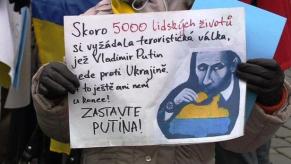 Skoro 5000 lidských životů
si vyžádala teroristická válka,
jež Vladimir Putin
vede proti Ukrajině.
A to ještě ani není
u konce!
ZASTAVTE
PUTINA!